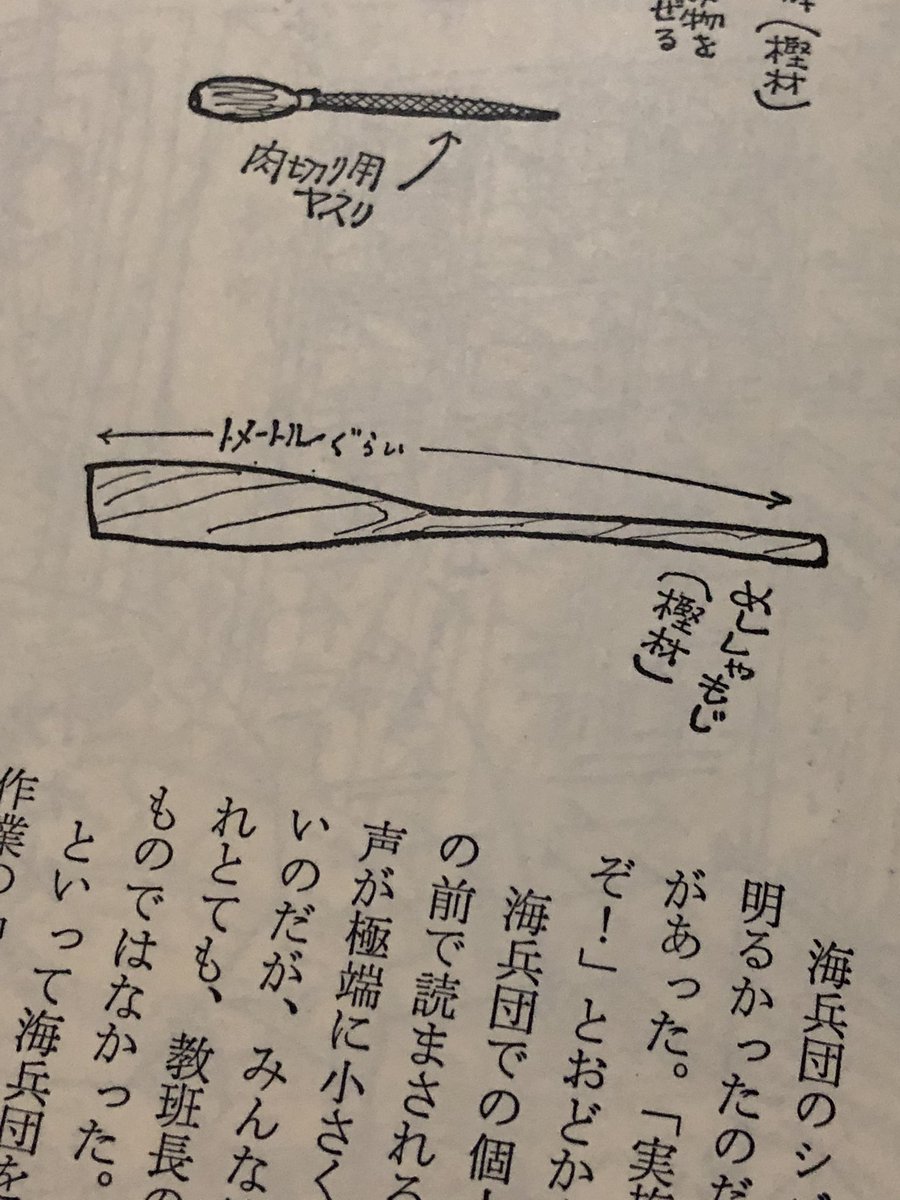 (樫材)
物を
ぜる
肉切り用
ヤスリ
1メートルぐらい
めししゃもじ
(樫材)
海兵団のシ
明るかったのだ
があった。「実施
ぞ!」とおどか
海兵団での個
の前で読まされる
声が極端に小さく
いのだが、みんな
れとても、教班長の
ものではなかった。
といって海兵団を
作業の